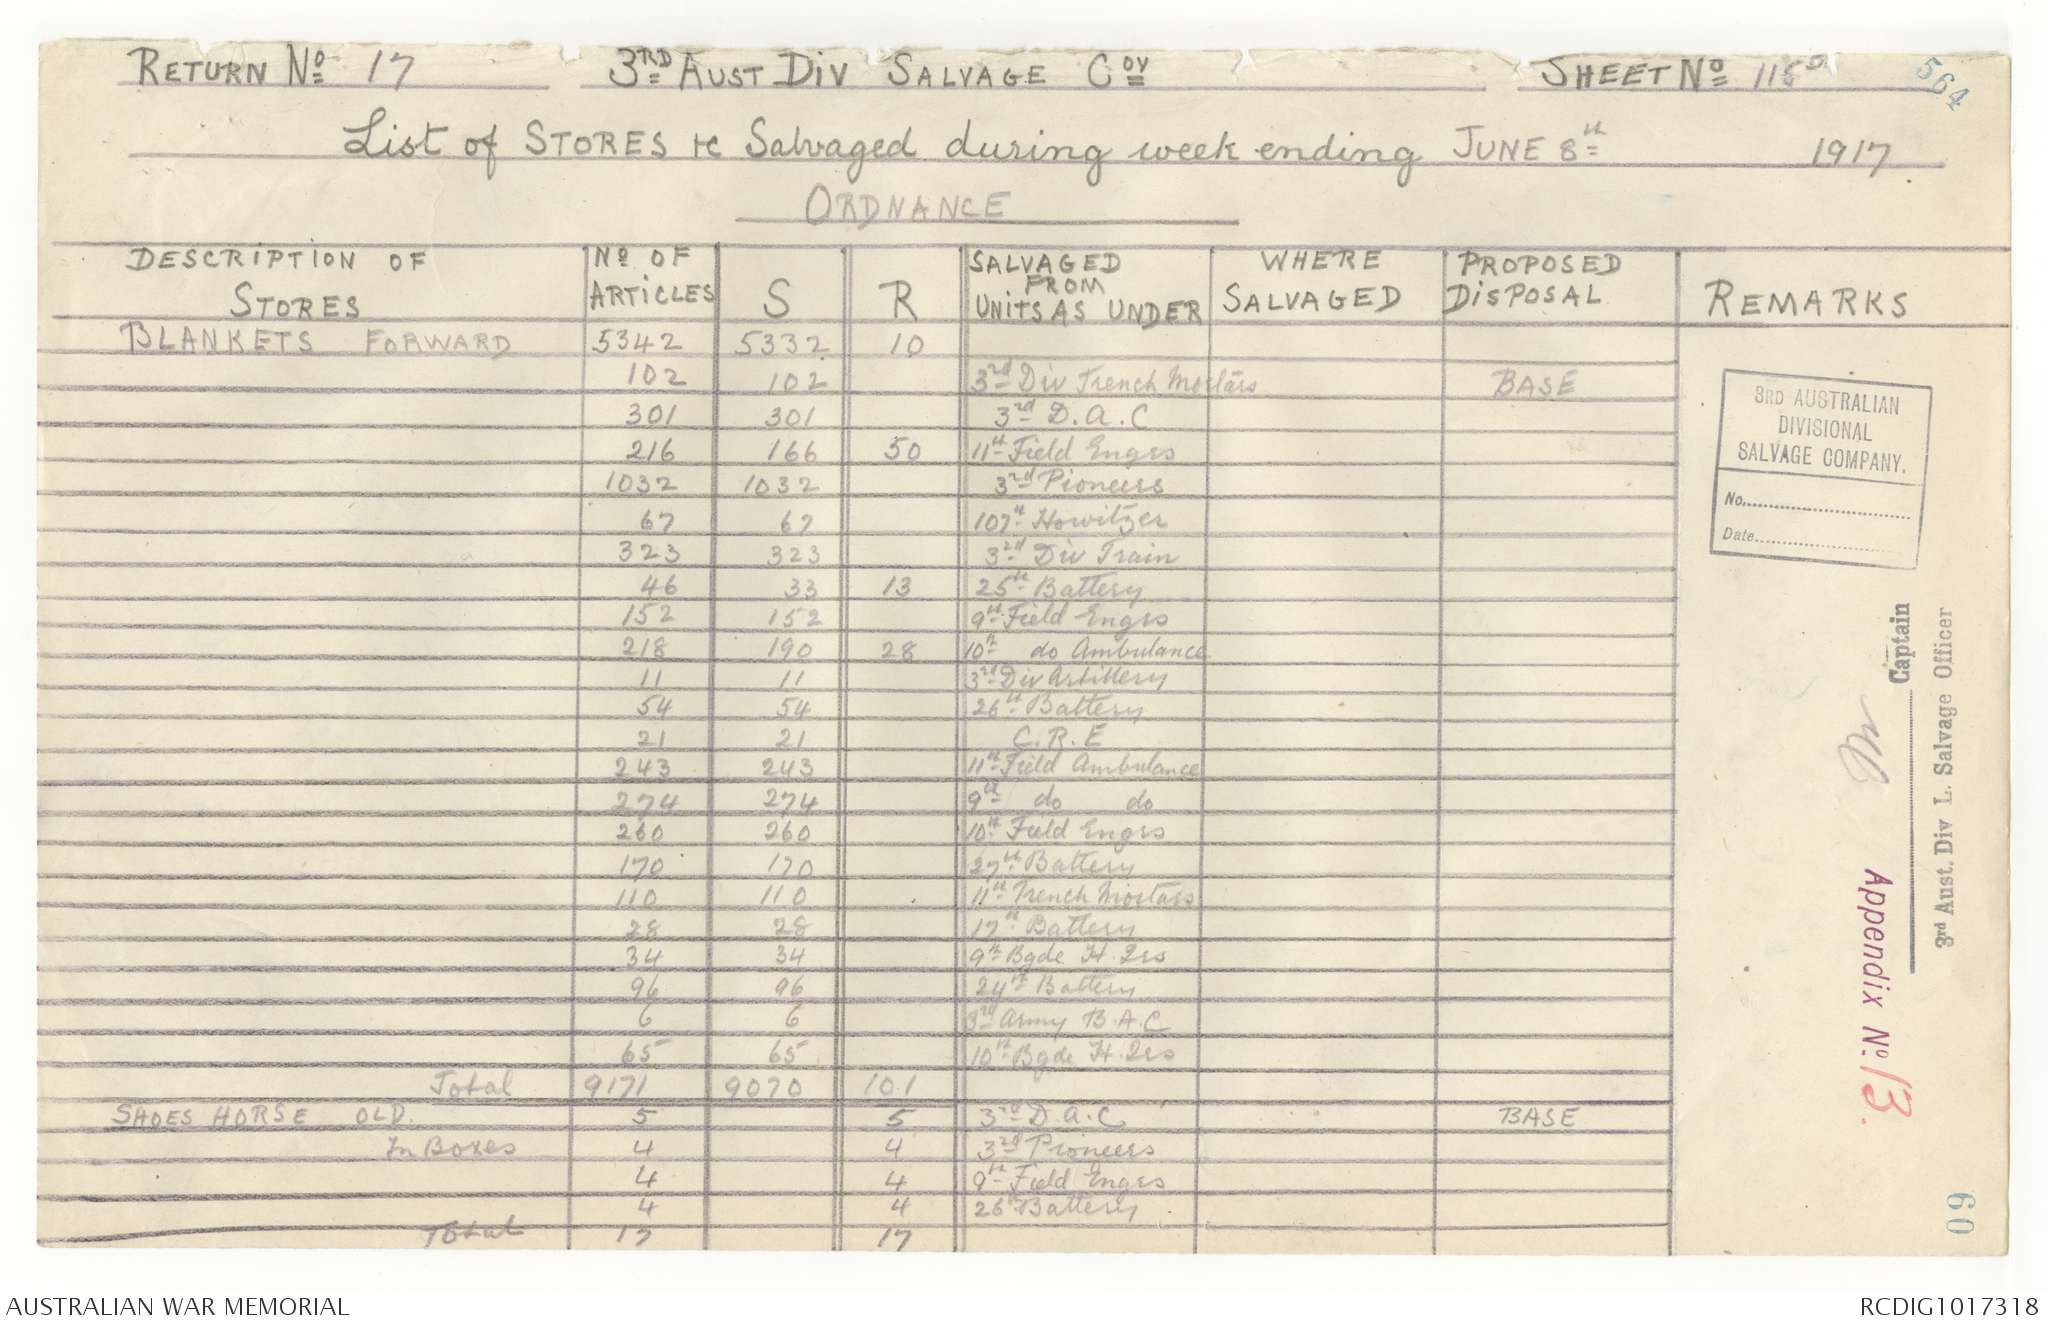 RETURN Nº 17 3RD AUST DIV SALVAGE COY SHEET Nº 115D 564
List of STORES &c Salvaged during week ending JUNE 8th 1917
ORDNANCE
DESCRIPTION OF STORES Nº OF ARTICLES S R SALVAGED FROM UNITS AS UNDER WHERE SALVAGED PROPOSED DISPOSAL REMARKS
BLANKETS FORWARD 5342 5332 10
102 102 3rd Div Trench Mortars BASE
301 301 3rd D.A.C
216 166 50 11th Field Engrs
1032 1032 3rd Pioneers
67 67 107th Howitzer
323 323 3rd Div Train
46 33 13 25th Battery
152 152 9th Field Engrs
218 190 28 10th do Ambulance
11 11 3rd Div Artillery
54 54 26th Battery
21 21 C.R.E
243 243 11th Field Ambulance
274 274 9th do do
260 260 10th Field Engrs
170 170 27th Battery
110 110 11th Trench Mortars
28 28 17th Battery
34 34 9th Bgde H.Qrs
96 96 24th Battery
6 6 3rd Army B.A.C
65 65 10th Bgde H.Qrs
Total 9171 9070 101
SHOES HORSE OLD. 5 5 3rd D.A.C BASE
In Boxes 4 4 3rd Pioneers
4 4 9th Field Engrs
4 4 26th Battery
Total 17 17
3RD AUSTRALIAN
DIVISIONAL
SALVAGE COMPANY.
No.
Date
Captain
3rd Aust. Div L. Salvage Officer
Appendix Nº 13.
60
AUSTRALIAN WAR MEMORIAL RCDIG1017318